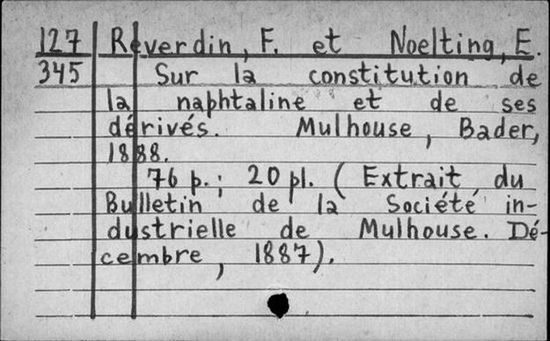 127 Reverdin, F. et Noelting, E.
345 Sur la constitution de
la naphtaline et de ses
dérivés. Mulhouse, Bader,
1888.
76 p.; 20 pl. (Extrait du
Bulletin de la Société in-
dustrielle de Mulhouse. Dé-
cembre, 1887).